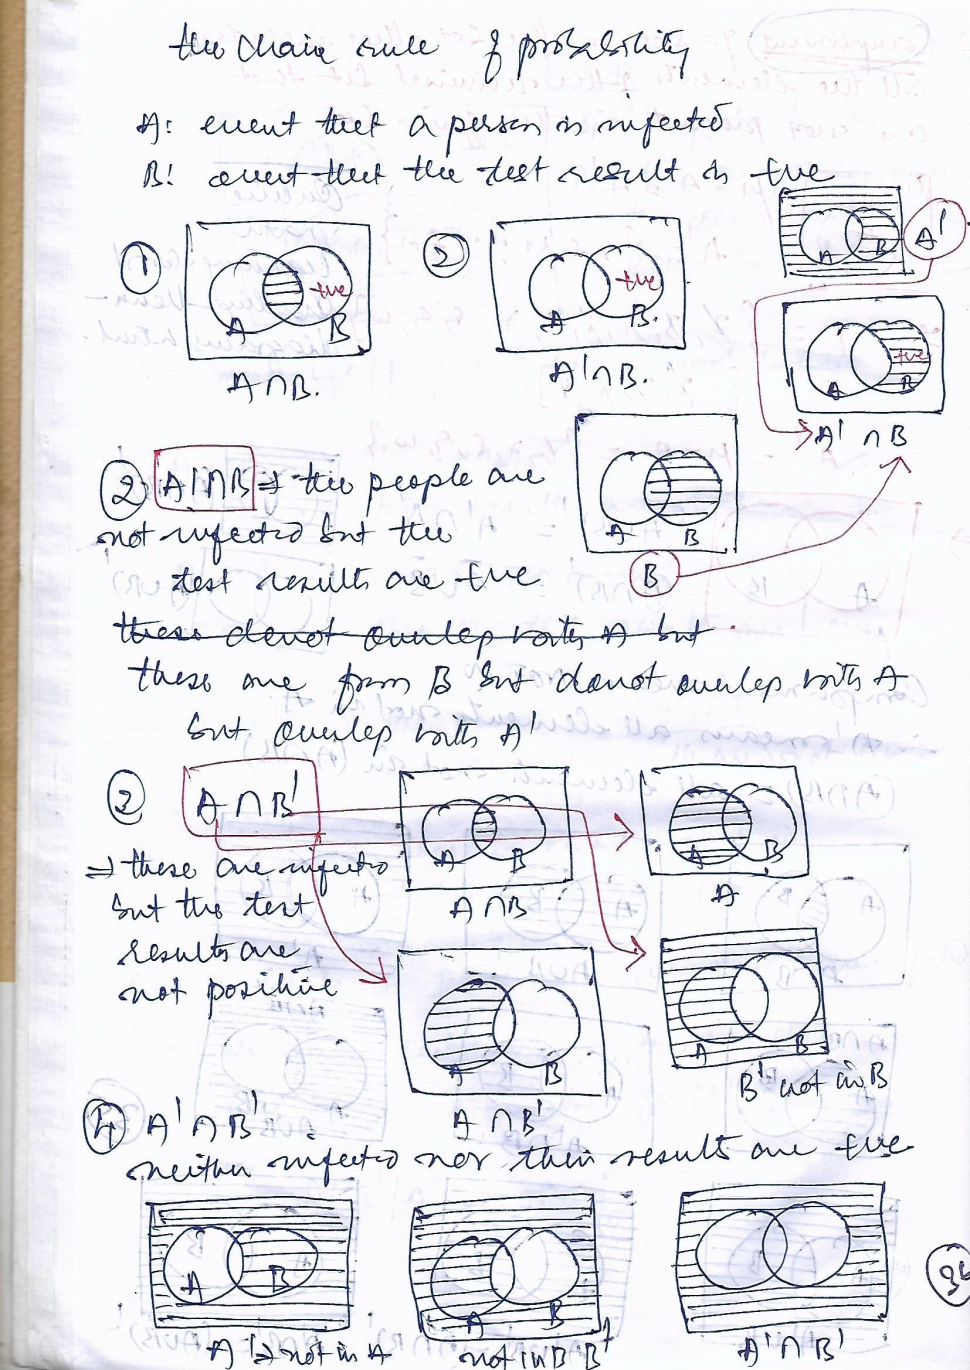 the chain rule of probability
A: event that a person is infected
B: event that the test result is +ve
①
A
+ve
B
A∩B.
②
A
+ve
B.
A'∩B.
A
B
A'
A
+ve
B
A' ∩ B
② A'∩B ⇒ the people are
not infected but the
test results are +ve
A
B
B
these do not overlap with A but
these are from B but do not overlap with A
but overlap with A'
2 A ∩ B'
⇒ these are infected
but the test
results are
not positive
A
B
A∩B
A
B
A
A
B
A ∩ B'
A
B
B' not in B
④ A' ∩ B'
neither infected nor their results are +ve
A
B
A' ⇒ not in A
A
B
not in B B'
A' ∩ B'